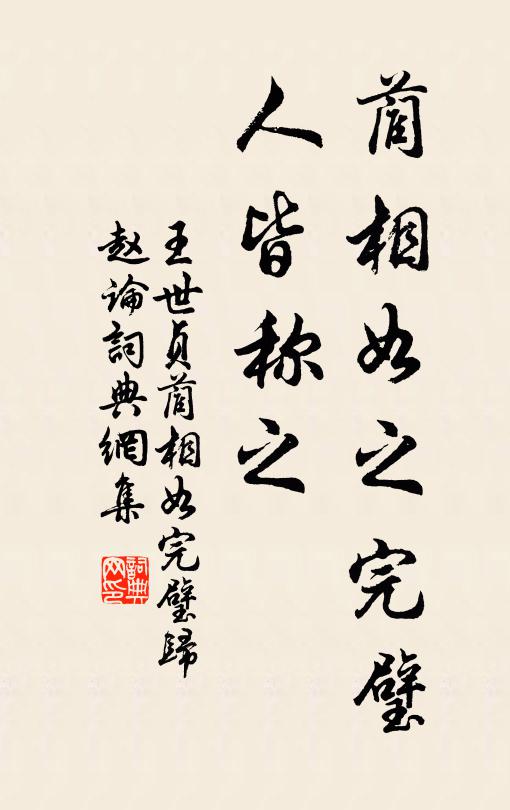 藺相如之完璧
人皆称之
王世貞藺相如完璧歸
赵論詞典網集
詞典
网印